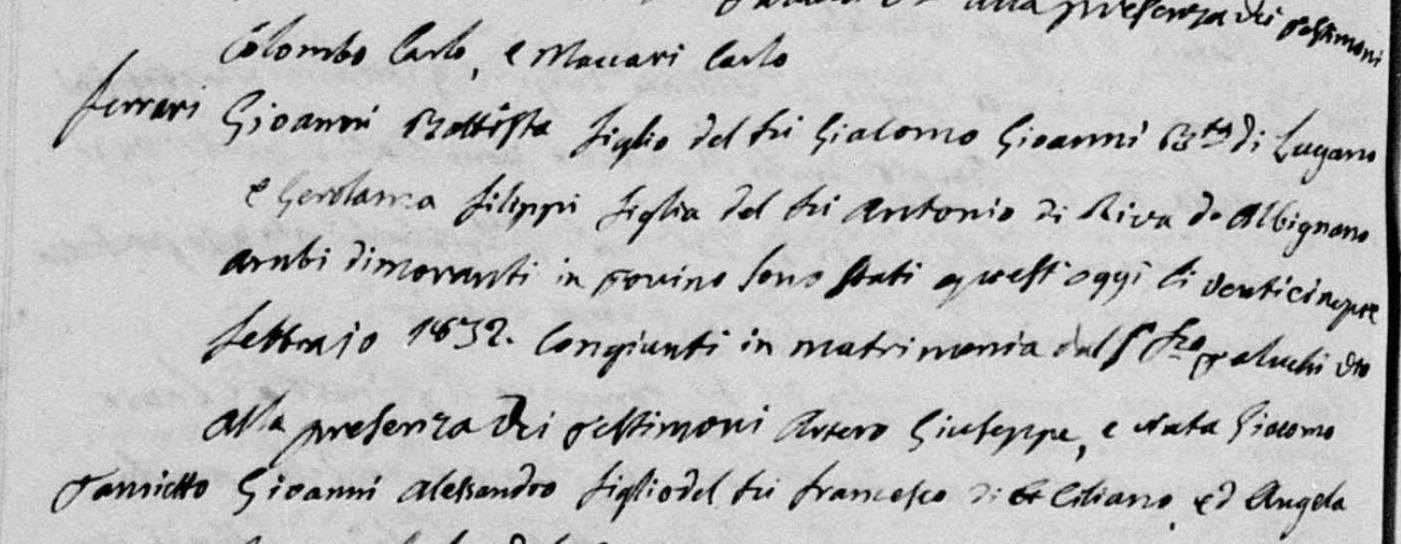 alla presenza dei testimoni
Colombo Carlo, e Maccari Carlo
Ferrari Gioanni Battista figlio del fu Giacomo Gioanni Bta di Lugano
e Gerolama Filippi figlia del fu Antonio di Riva de Albignano
ambi dimoranti in Torino sono stati quest'oggi li venticinque
febbrajo 1832. Congiunti in matrimonio dal
alla presenza dei testimoni Artero Giuseppe, e Giacomo
Gioanni Alessandro figlio del fu Francesco di Ciliano, ed Angela